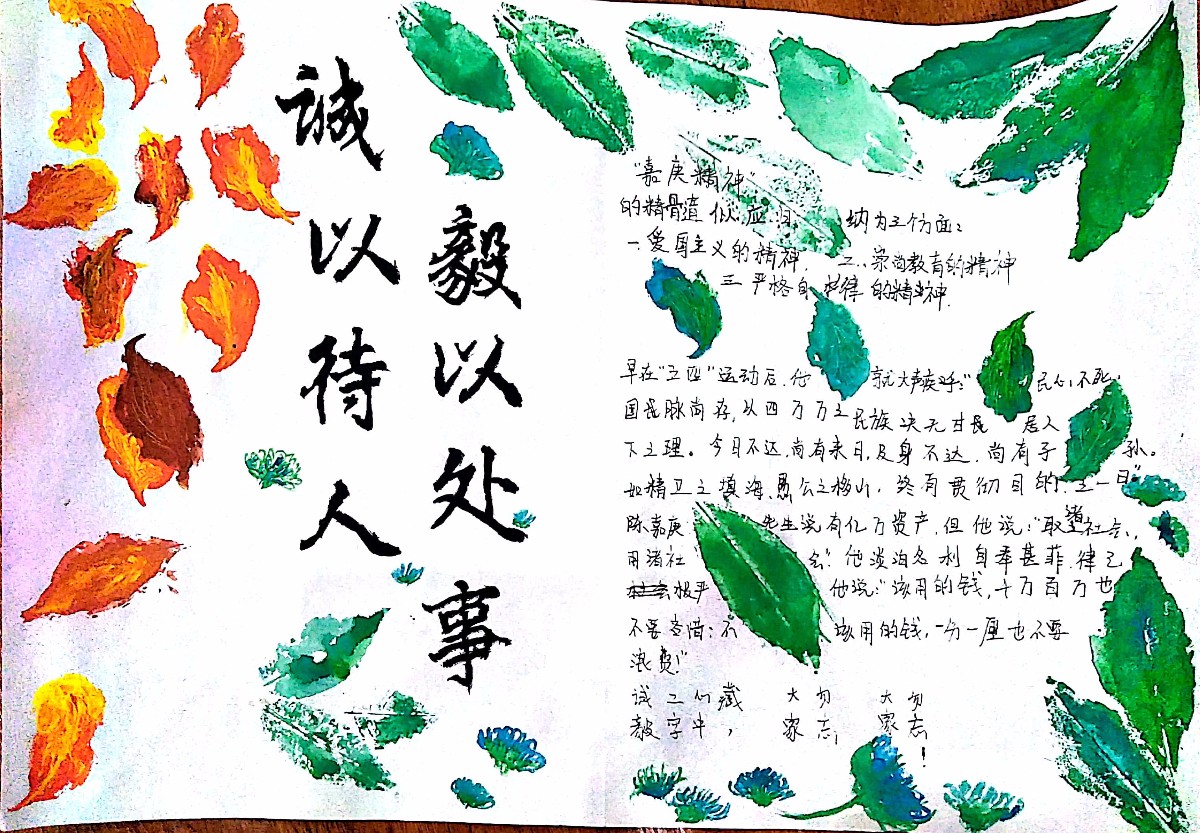 誠以待人
毅以处事
"嘉庚精神"
的精骨道似应归纳为三个方面：
一.爱国主义的精神. 二.崇尚教育的精神
三.严格自律的精神.
早在"五四"运动后,他就大声疾呼:"民心不死,
国民脉尚存,以四万万之民族决无甘居人
下之理。今日不达,尚有来日,及身不达,尚有子孙。
如精卫之填海,愚公之移山,终有贯彻目的之一日"
陈嘉庚先生说有亿万资产,但他说:"取渚社会,
用渚社会."他淡泊名利自奉甚菲律己
极严他说:"该用的钱,千万百万也
不要吝惜;不该用的钱,一分一厘也不要
浪费!"
试二心藏 大勿 大勿
毅字中， 家忘, 家忘!